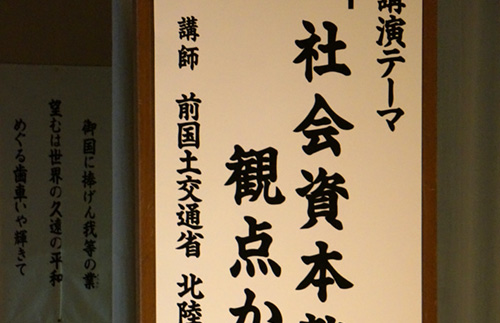 講演テーマ
社会資本整
観点か
講師 前国土交通省 北陸
御国に捧げん我等の業
望むは世界の久遠の平和
めぐる歯車いや輝きて